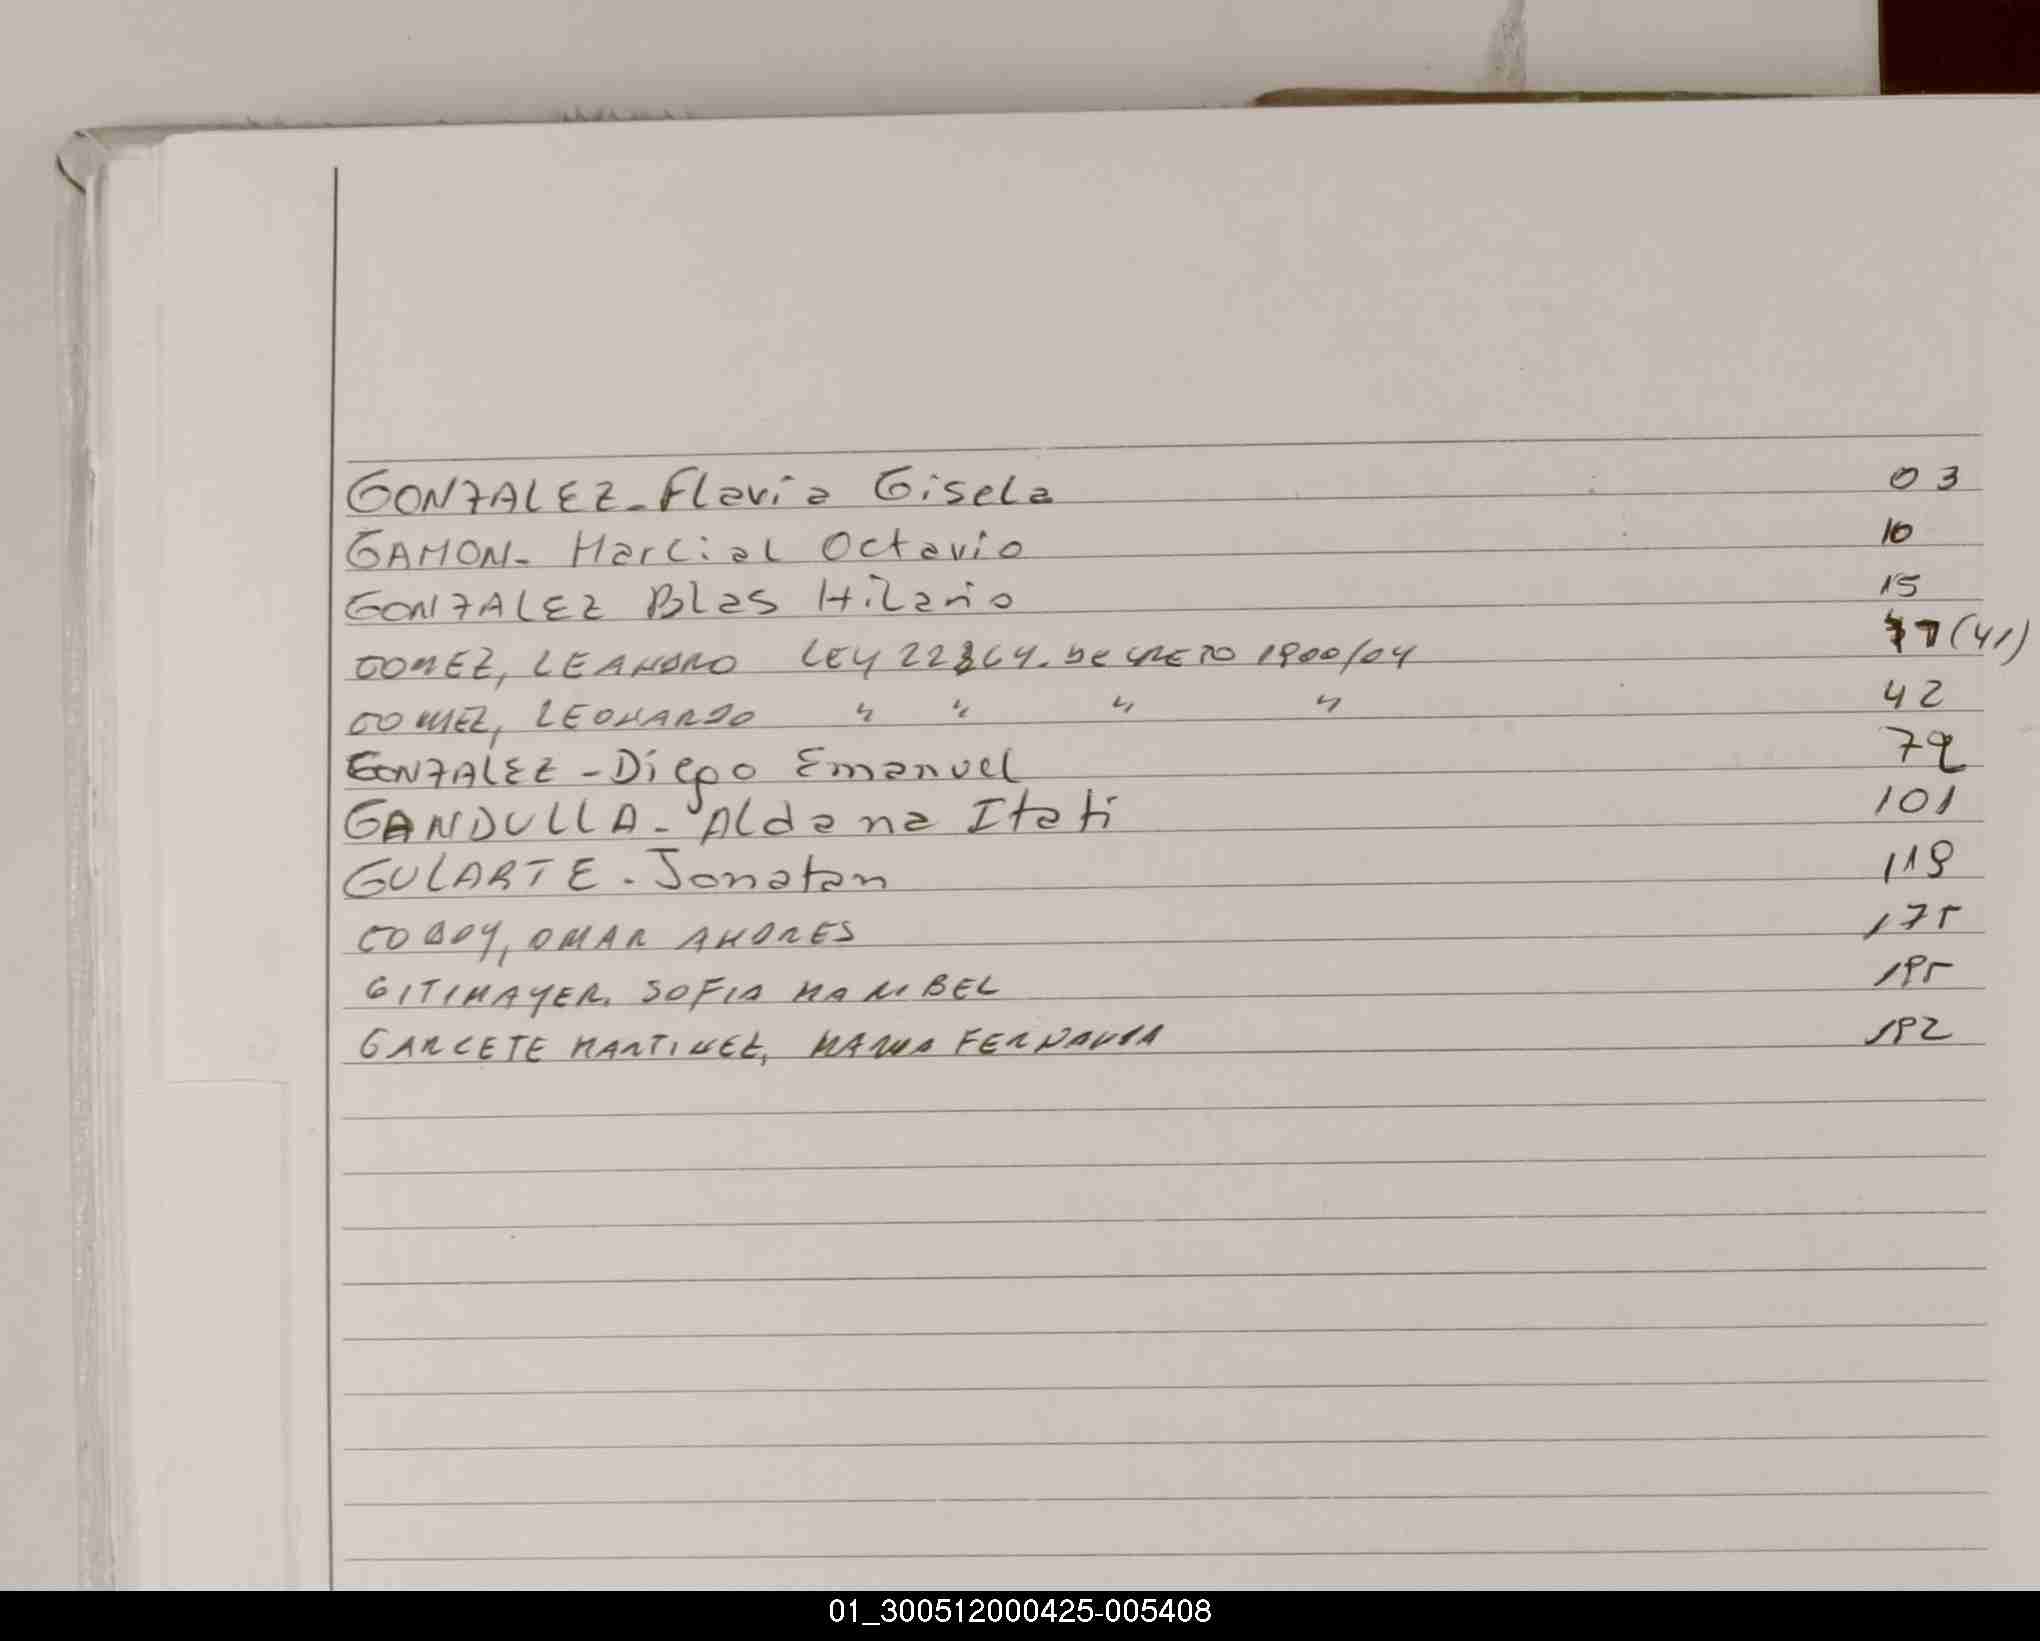 GONZALEZ - Flavia Gisela 03
GAMON - Marcial Octavio 10
GONZALEZ Blas Hilario 15
GOMEZ, LEANDRO LEY 22364. DECRETO 1900/04 (41)
GOMEZ, LEONARDO " " " " 42
GONZALEZ - Diego Emanuel 79
GANDULLA - Aldana Itati 101
GULARTE - Jonatan 119
GODOY, OMAR ANDRES 175
GITIMAYER. SOFIA MARIBEL 195
GARCETE MARTINEZ, MARIA FERNANDA 192
01_300512000425-005408